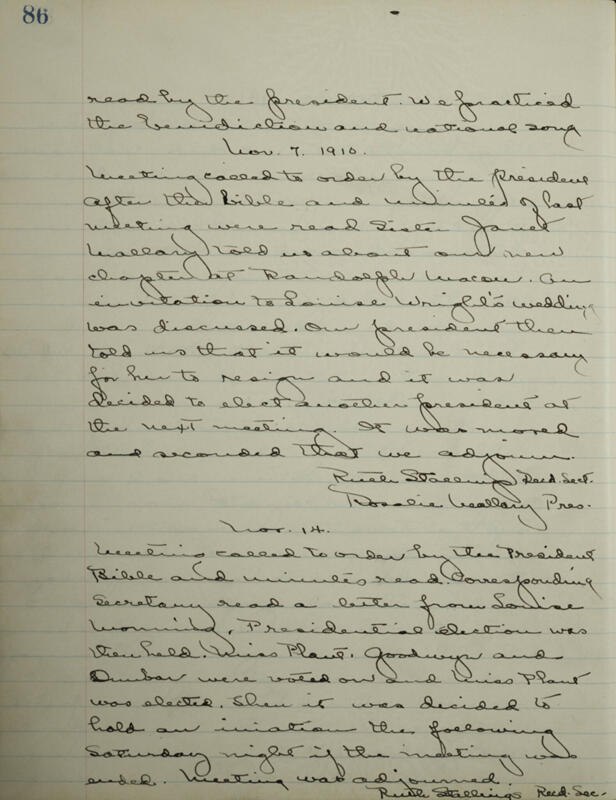 86
read by the president. We practiced
the benediction and national song
Nov. 7. 1910.
Meeting called to order by the president
after the Bible and minutes of last
meeting were read Sister Janet
Mallary told us about our new
chapter at Randolph Macon. An
invitation to Louise Wright's wedding
was discussed. Our president then
told us that it would be necessary
for her to resign and it was
decided to elect another president at
the next meeting. It was moved
and seconded that we adjourn.
Ruth Stallings Recd. Sect.
Rosalie Mallary Pres.
Nov. 14.
Meeting called to order by the President
Bible and minutes read. Corresponding
Secretary read a letter from Louise
Presidential election was
then held. Miss Plant, Goodwyn and
Dunbar were voted on and Miss Plant
was elected. Then it was decided to
hold an iniation the following
Saturday night if the meeting was
ended. Meeting was adjourned.
Ruth Stallings Recd. Sec.